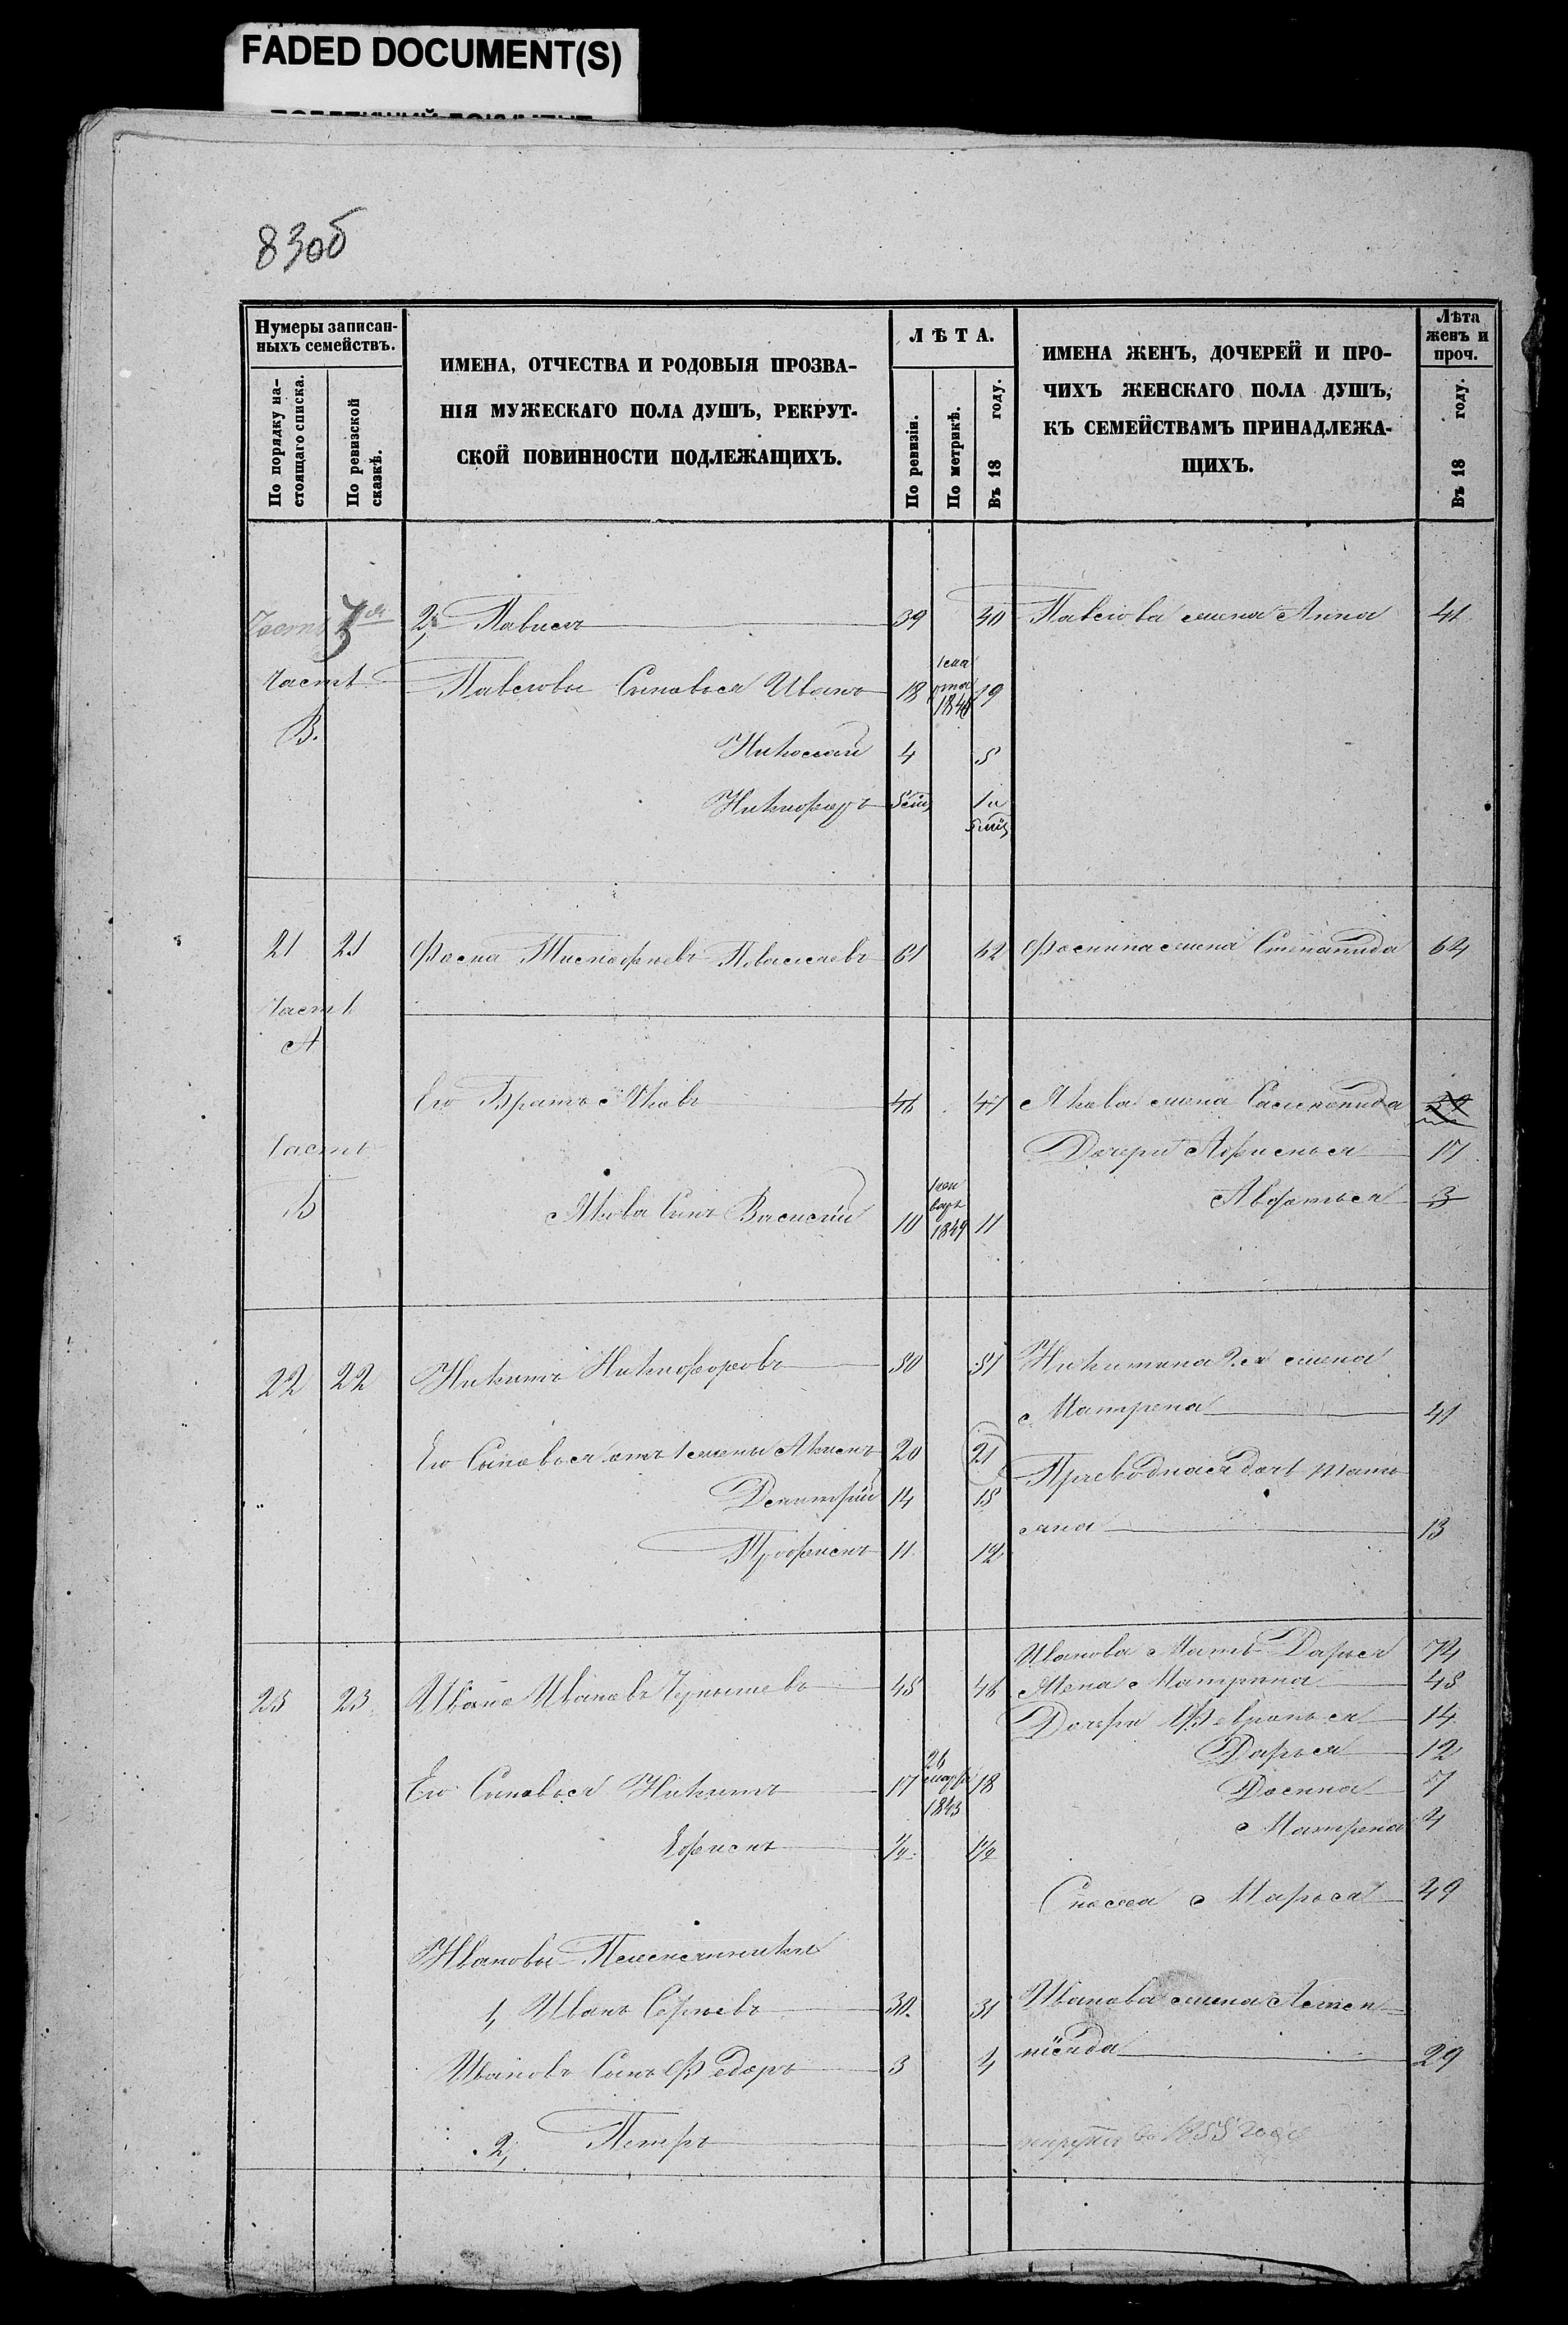 FADED DOCUMENT(S)
83об
Нумеры записан-
ныхъ семействъ.
По порядку на-
стоящаго списка.
По ревизской
сказкѣ.
ИМЕНА, ОТЧЕСТВА И РОДОВЫЯ ПРОЗВА-
НІЯ МУЖЕСКАГО ПОЛА ДУШЪ, РЕКРУТ-
СКОЙ ПОВИННОСТИ ПОДЛЕЖАЩИХЪ.
ЛѢТА.
По ревизіи.
По метрикѣ.
Въ 18 году.
ИМЕНА ЖЕНЪ, ДОЧЕРЕЙ И ПРО-
ЧИХЪ ЖЕНСКАГО ПОЛА ДУШЪ,
КЪ СЕМЕЙСТВАМЪ ПРИНАДЛЕЖА-
ЩИХЪ.
Лѣта
женъ и
проч.
Въ 18 году.
Часть 3я 2, Павелъ 39 40 Павлова жена Анна 41
Часть Павловы Сыновья Иванъ 18 19
В.
Николай 4 5
Никифоръ 1 и
21 21 Фома 61 62 Фомина жена Степанида 64
Часть
А
Его Братъ Яковъ 46 47 Якова жена
Часть Дочери Афимья 17
Б Якова Сынъ Василій 10 1849 11 3
22 22 Никита Никифоровъ 50 51 Никитина 2я жена
Матрена 41
Его Сыновья отъ 1 жены 20 21
Приводная дочь Тать
Дмитрій 14 15
яна 13
Трофимъ 11 12
Иванова Мать Дарья 74
23 23 Иванъ Ивановъ Чернышевъ 45 46 Жена Матрена 45
Дочери Февронья 14
Дарья 12
Его Сыновья Никита 17 26 1843 18 Домна 7
Матрена 4
Ефимъ 1/2 1 1/2
Сноха Марья 49
Ивановы Племянники
1, Иванъ Сергѣевъ 30 31 Иванова жена
Ивановъ Сынъ Федоръ 3 4 29
2, Петръ рекрутъ въ 1855 годѣ